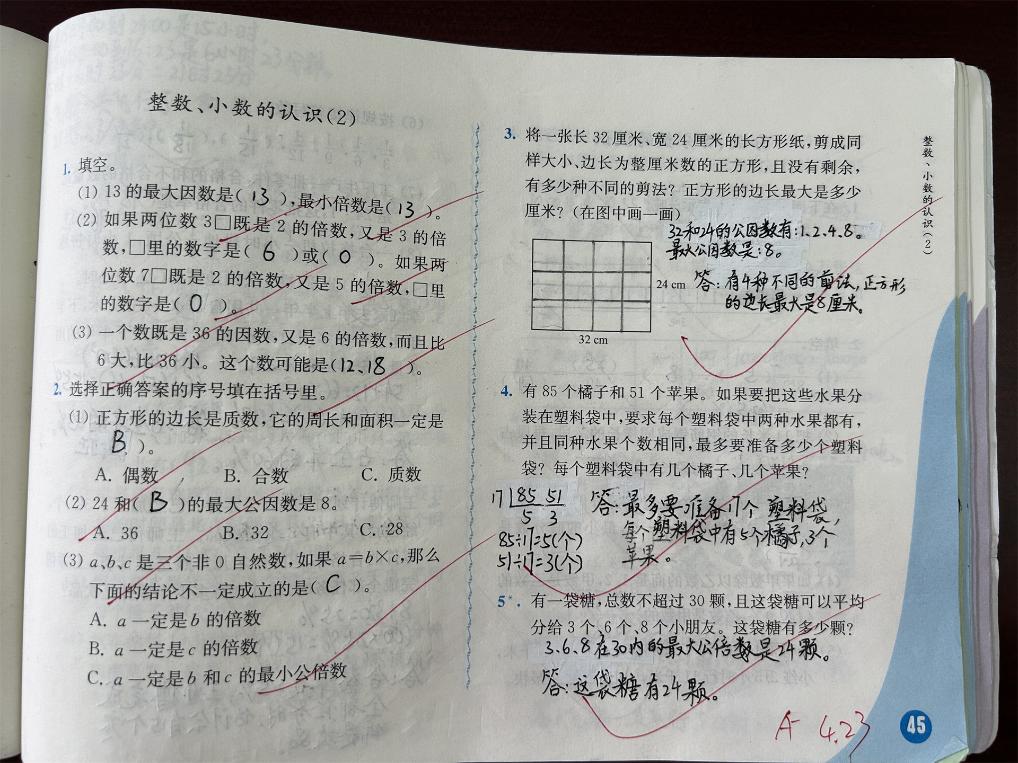 整数、小数的认识(2)
1. 填空。
(1) 13的最大因数是( 13 ),最小倍数是( 13 )。
(2) 如果两位数3□既是2的倍数,又是3的倍
数,□里的数字是( 6 )或( 0 )。如果两
位数7□既是2的倍数,又是5的倍数,□里
的数字是( 0 )。
(3) 一个数既是36的因数,又是6的倍数,而且比
6大,比36小。这个数可能是(12、18 )。
2. 选择正确答案的序号填在括号里。
(1) 正方形的边长是质数,它的周长和面积一定是
( B )。
A. 偶数 B. 合数 C. 质数
(2) 24和( B )的最大公因数是8。
A. 36 B. 32 C. 28
(3) a、b、c是三个非0自然数,如果a=b×c,那么
下面的结论不一定成立的是( C )。
A. a一定是b的倍数
B. a一定是c的倍数
C. a一定是b和c的最小公倍数
3. 将一张长32厘米、宽24厘米的长方形纸,剪成同
样大小、边长为整厘米数的正方形,且没有剩余,
有多少种不同的剪法?正方形的边长最大是多少
厘米?(在图中画一画)
32和24的公因数有:1、2、4、8。
最大公因数是:8。
24 cm
答:有4种不同的剪法,正方形
的边长最大是8厘米。
32 cm
4. 有85个橘子和51个苹果。如果要把这些水果分
装在塑料袋中,要求每个塑料袋中两种水果都有,
并且同种水果个数相同,最多要准备多少个塑料
袋?每个塑料袋中有几个橘子、几个苹果?
17 85 51
5 3
85÷17=5(个)
51÷17=3(个)
答:最多要准备17个塑料袋,
每个塑料袋中有5个橘子,3个
苹果。
5*. 有一袋糖,总数不超过30颗,且这袋糖可以平均
分给3个、6个、8个小朋友。这袋糖有多少颗?
3、6、8在30内的最大公倍数是24颗。
答:这袋糖有24颗。
A- 4.23
整数、小数的认识(2)
45